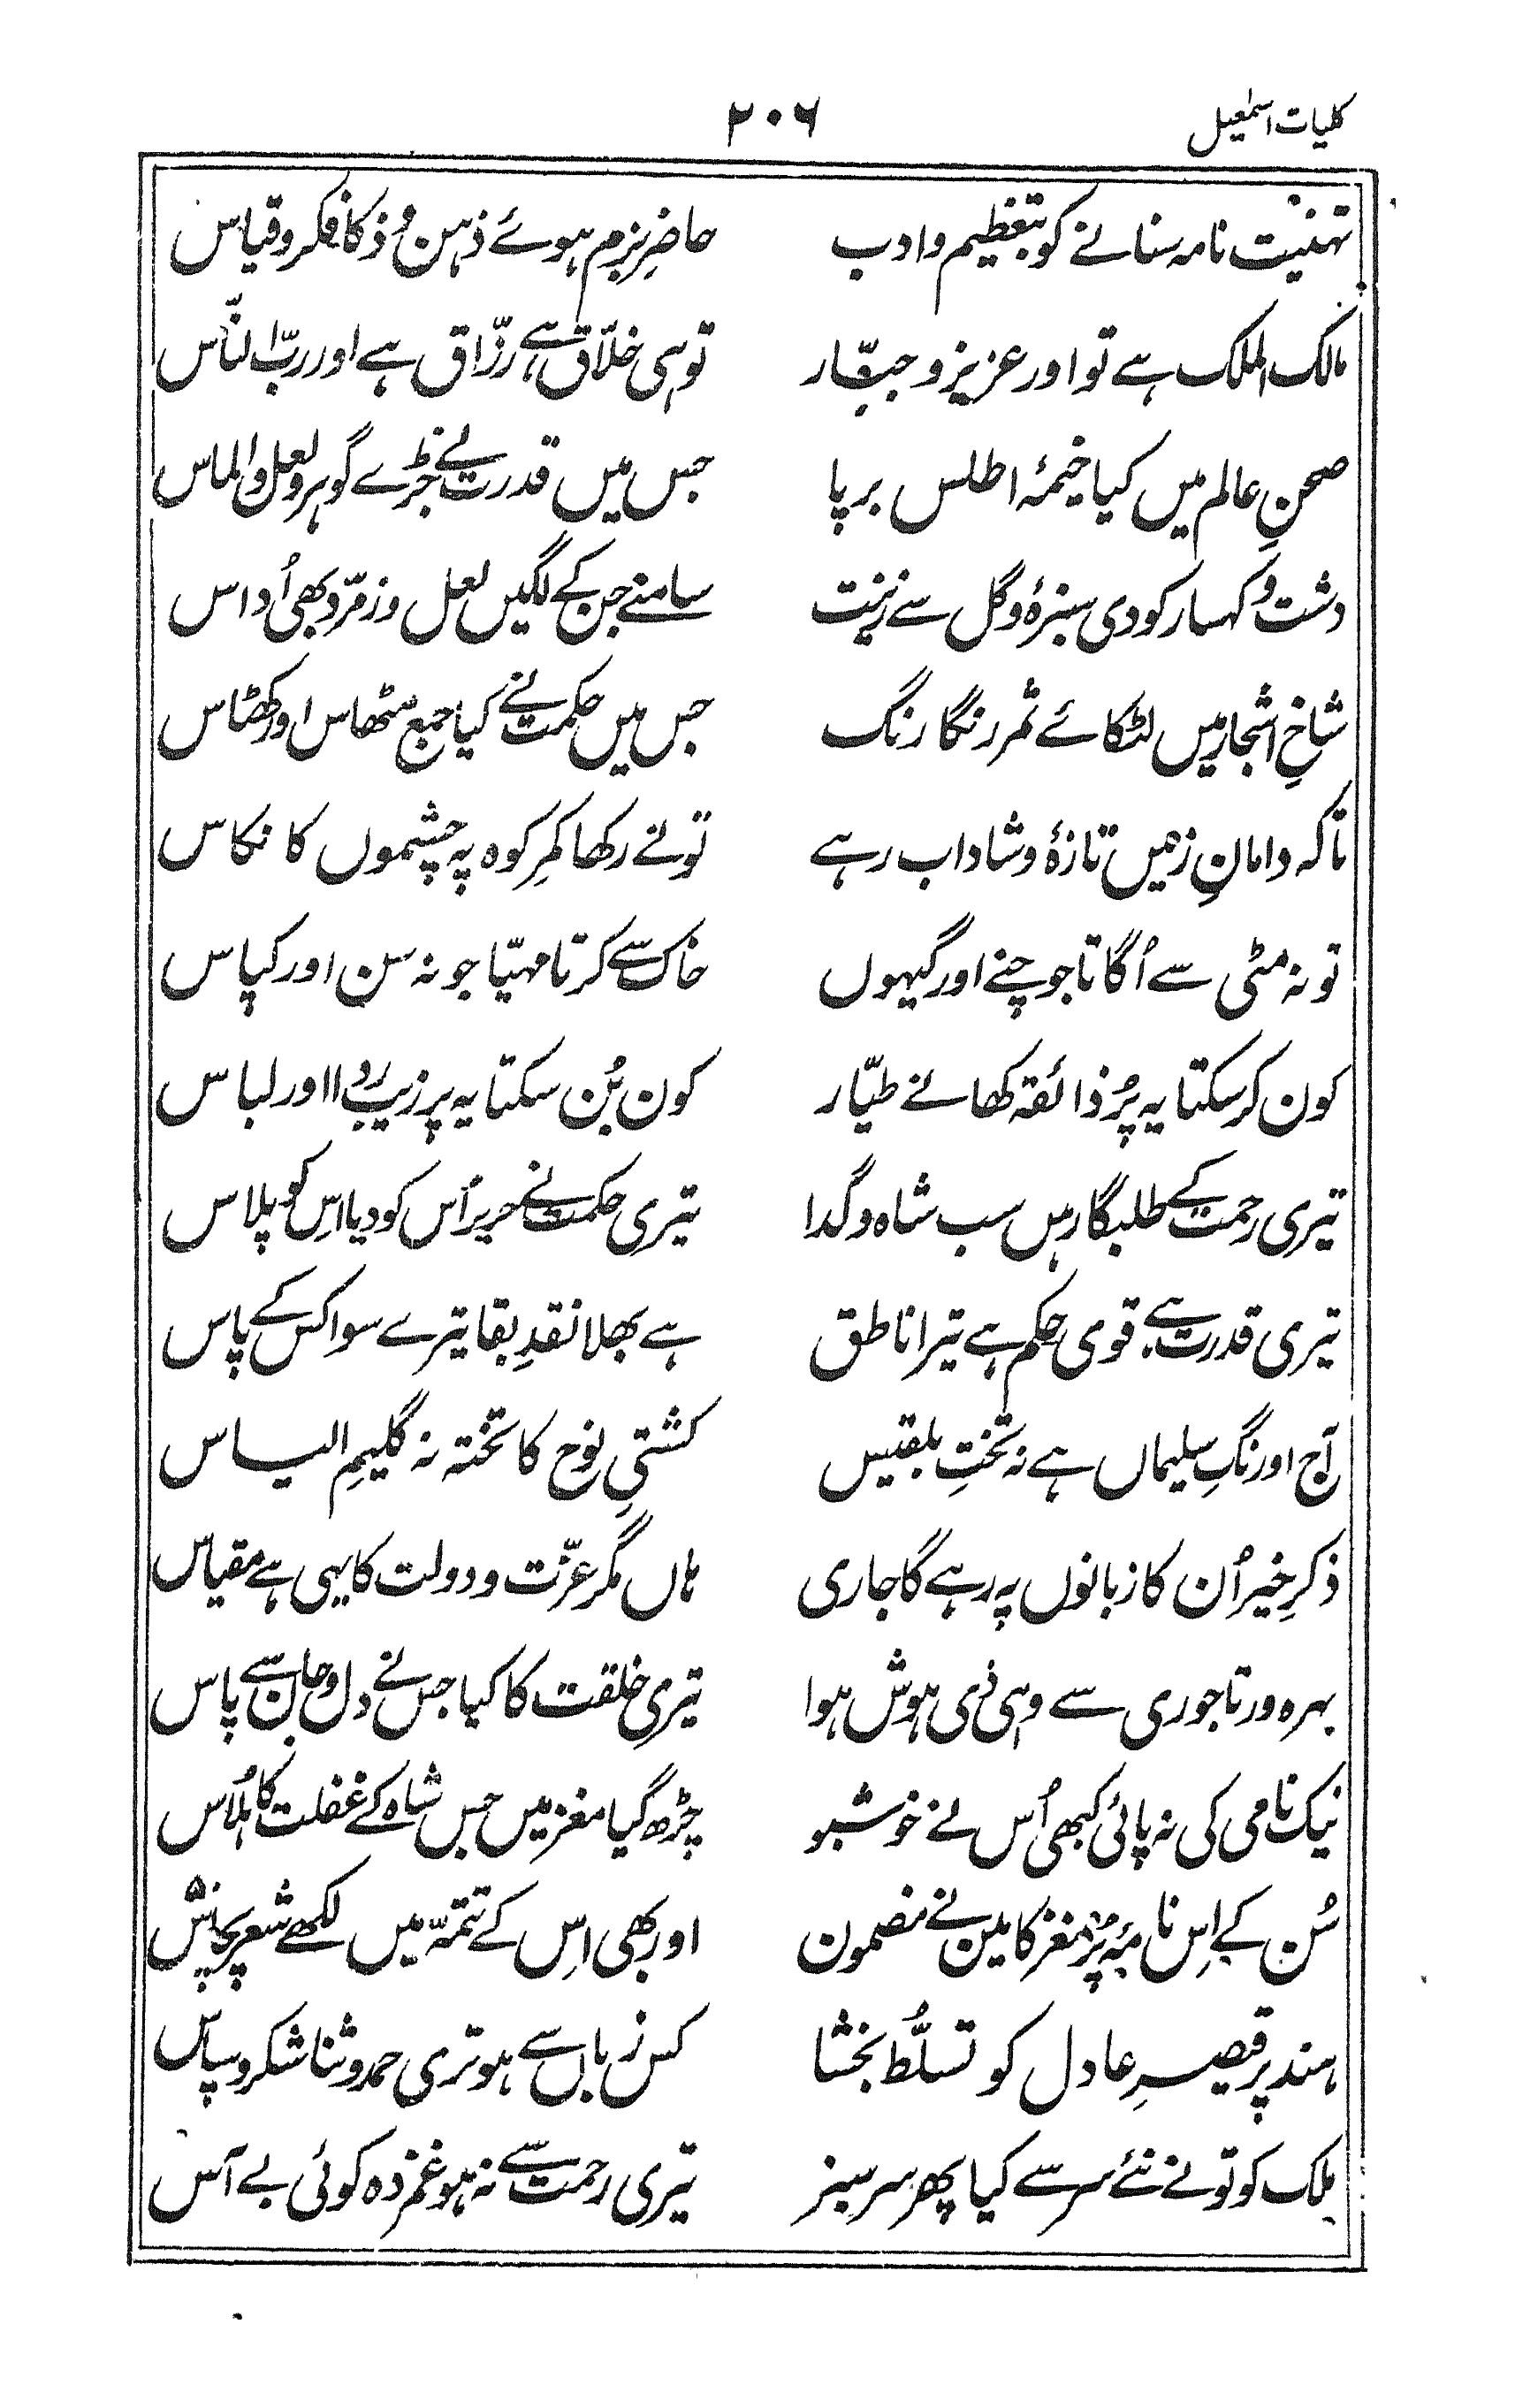 کلیات اسمٰعیل ۲۰۶
تہنیت نامہ سنانے کو بتعظیم و ادب حاضرِ بزم ہوئے ذہن و ذکا فکر و قیاس
مالک الملک ہے تو اور عزیز و جبّار تو ہی خلّاق ہے رزّاق ہے اور ربّ النّاس
صحنِ عالم میں کیا خیمۂ اطلس برپا جس میں قدرت نے جڑے گوہر و لعل و الماس
دشت و کہسار کو دی سبزۂ و گل سے زینت سامنے جن کے لگیں لعل و زمرّد بھی اُداس
شاخِ اشجار میں لٹکائے ثمر رنگا رنگ جس میں حکمت نے کیا جمع مٹھاس اور کھٹاس
تاکہ دامانِ زمیں تازۂ و شاداب رہے تو نے رکھا کمرِ کوہ پہ چشموں کا نکاس
تو نہ مٹی سے اُگاتا جو چنے اور گیہوں خاک سے کرتا مہیّا جو نہ سن اور کپاس
کون کر سکتا یہ پُر ذائقہ کھانے طیّار کون بُن سکتا یہ پر زیب ردا اور لباس
تیری رحمت کے طلبگار ہیں سب شاہ و گدا تیری حکمت نے حریر اُس کو دیا اِس کو پلاس
تیری قدرت ہے قوی حکم ہے تیرا ناطق ہے بھلا نقدِ بقا تیرے سوا کس کے پاس
آج اورنگِ سلیماں ہے نہ تختِ بلقیس کشتیِ نوح کا تختہ نہ گلیمِ الیاس
ذکرِ خیر اُن کا زبانوں پہ رہے گا جاری ہاں مگر عزّت و دولت کا یہی ہے مقیاس
بہرہ ور تاجوری سے وہی ذی ہوش ہوا تیری خلقت کا کیا جس نے دل و جان سے پاس
نیک نامی کی نہ پائی کبھی اُس نے خوشبو چڑھ گیا مغز میں جس شاہ کے غفلت کا ہُلاس
سُن کے اِس نامۂ پُر مغز کا میں نے مضمون اور بھی اِس کے تتمّہ میں لکھے شعر پچاس
ہند پر قیصرِ عادل کو تسلُّط بخشا کس زباں سے ہو تری حمد و ثنا شکر و سپاس
ملک کو تو نے نئے سر سے کیا پھر سرسبز تیری رحمت سے نہ ہو غمزدہ کوئی بے آس